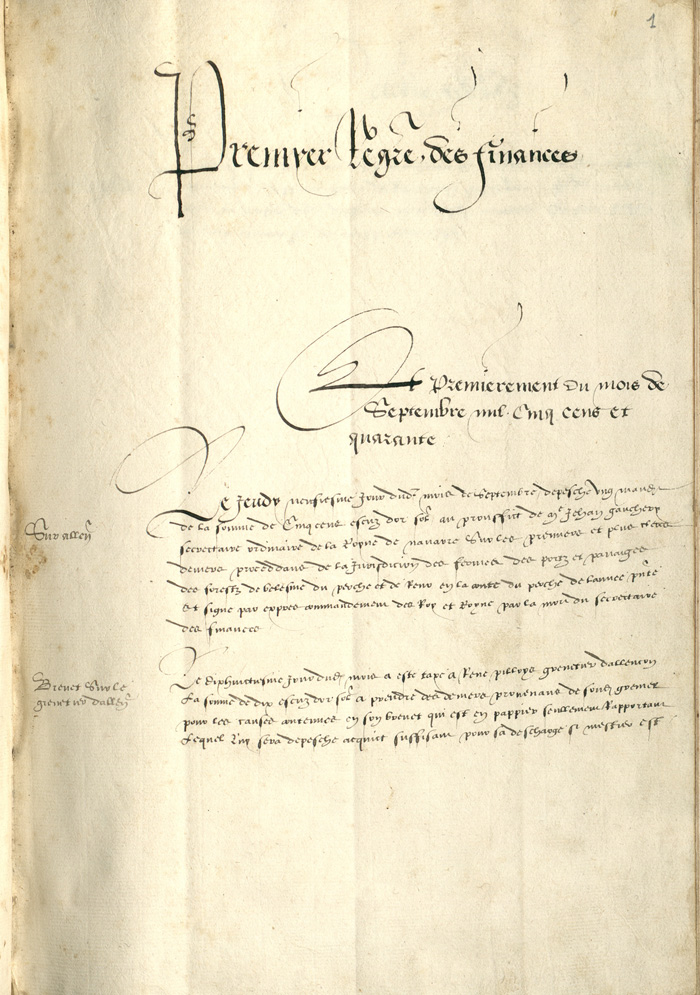 1
Premyer Regre des finances
Et Premierement du mois de
Septembre mil Cinq cens et
quarante
Le Jeudy neufiesme Jour dud mois de Septembre depesché ung mand
de la somme de Cinq cens escuz dor sol au prouffict de Me Jehan
secretaire ordinaire de la Royne de navarre Sur les premiers et plus clers
deniers proceddans de la Jurisdiction des fermes des portz et
des forestz de belesme du perche et de Reno en la conté du perche de lannee pnte
Et signé par expres commandement des Roy et Royne par la main du secretaire
des finances
Sur allen
Le dixhuictiesme Jour dud mois a esté taxé a René grenetier dallencon
La somme de dix escuz dor sol a prendre des deniers provenans de sond grenier
pour les causes contenues en son brevet qui est en pappier seullement Rapportant
Lequel Luy sera depesché acquict suffisant pour sa descharge si mestier est
Brevet Sur le
grenetier dallen